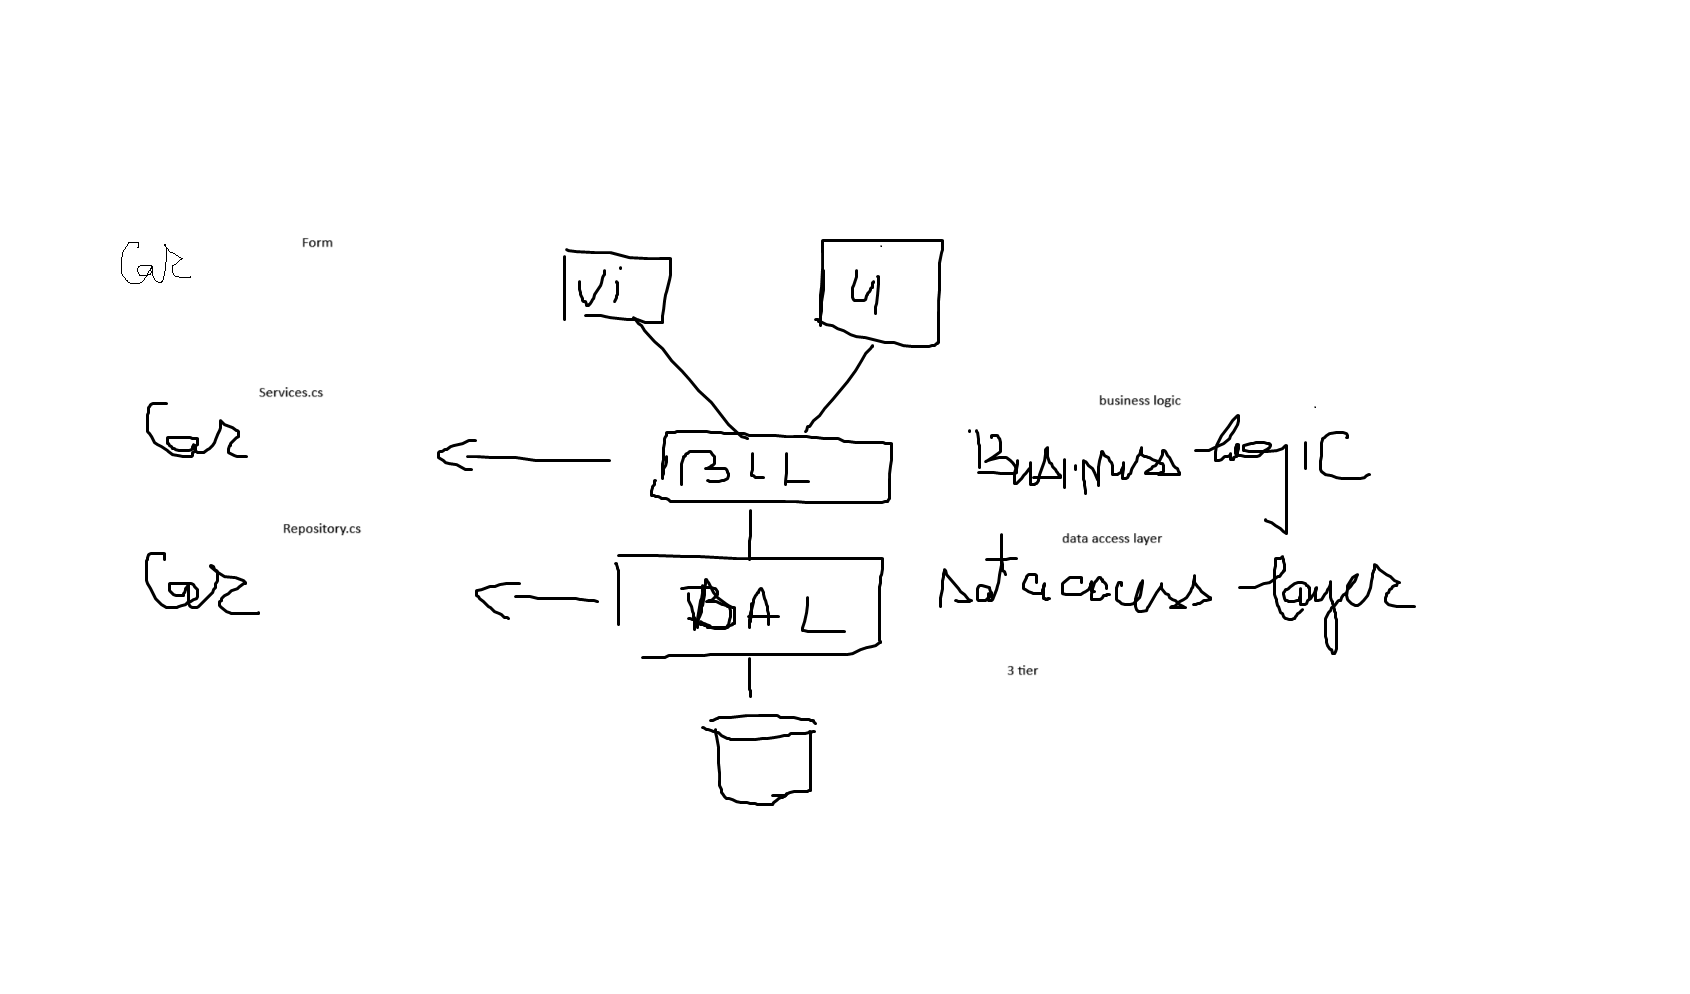 Car Form
Vi
UI
Services.cs
Car
BLL
business logic
Business logic
Repository.cs
Car
DAL
data access layer
data access layer
3 tier